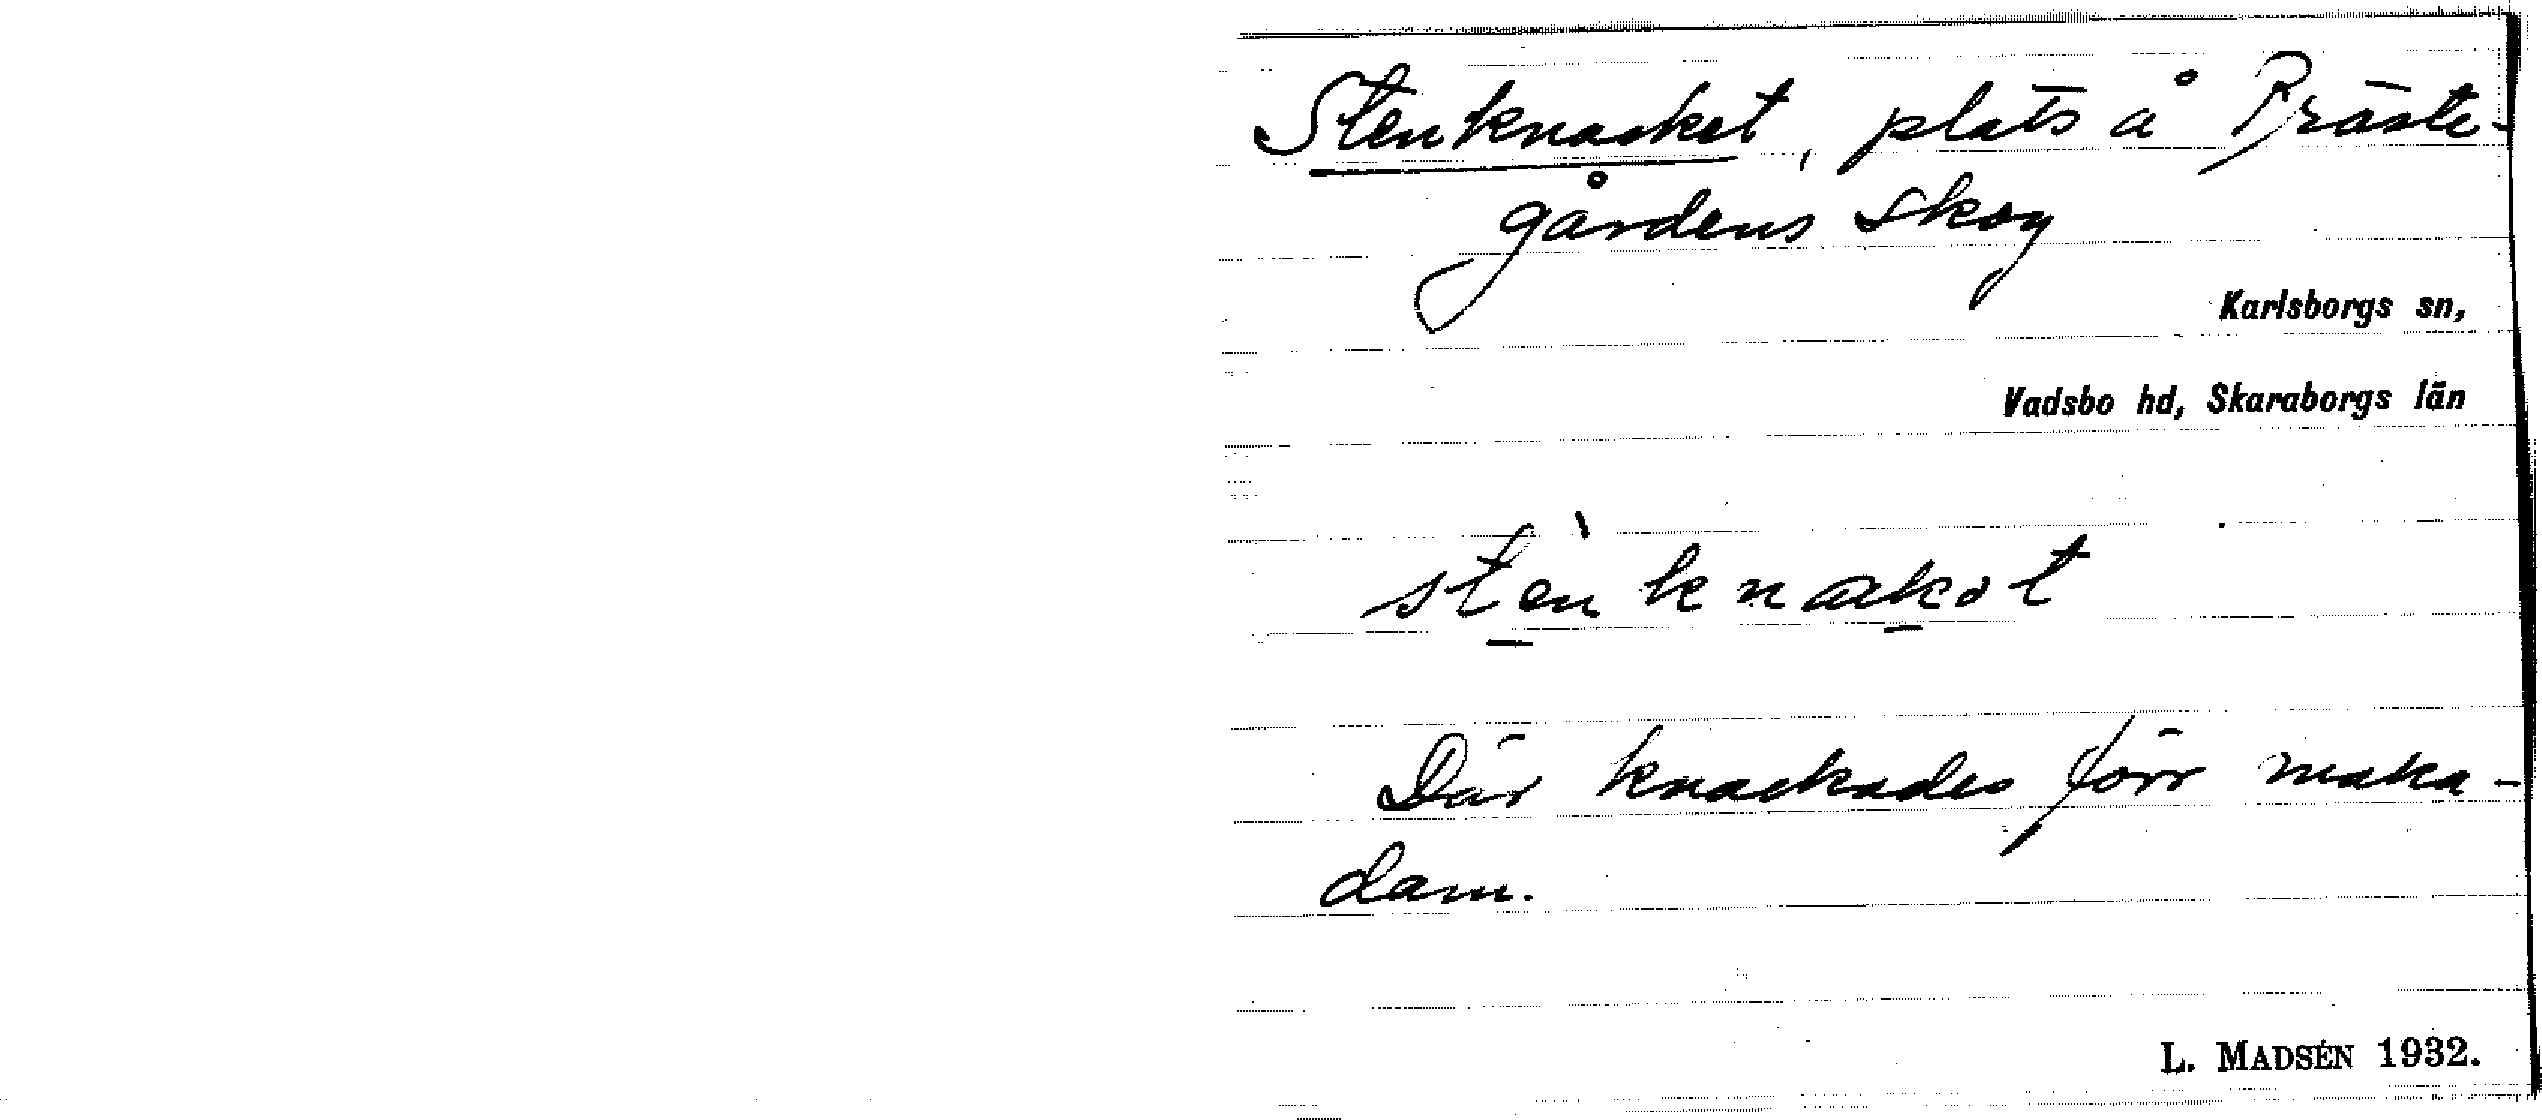 Stenknacket, plats å Präste-
gårdens skog
Karlsborgs sn,
Vadsbo hd, Skaraborgs län
stènknakət
Där knackades förr maka-
dam.
L. MADSÉN 1932.